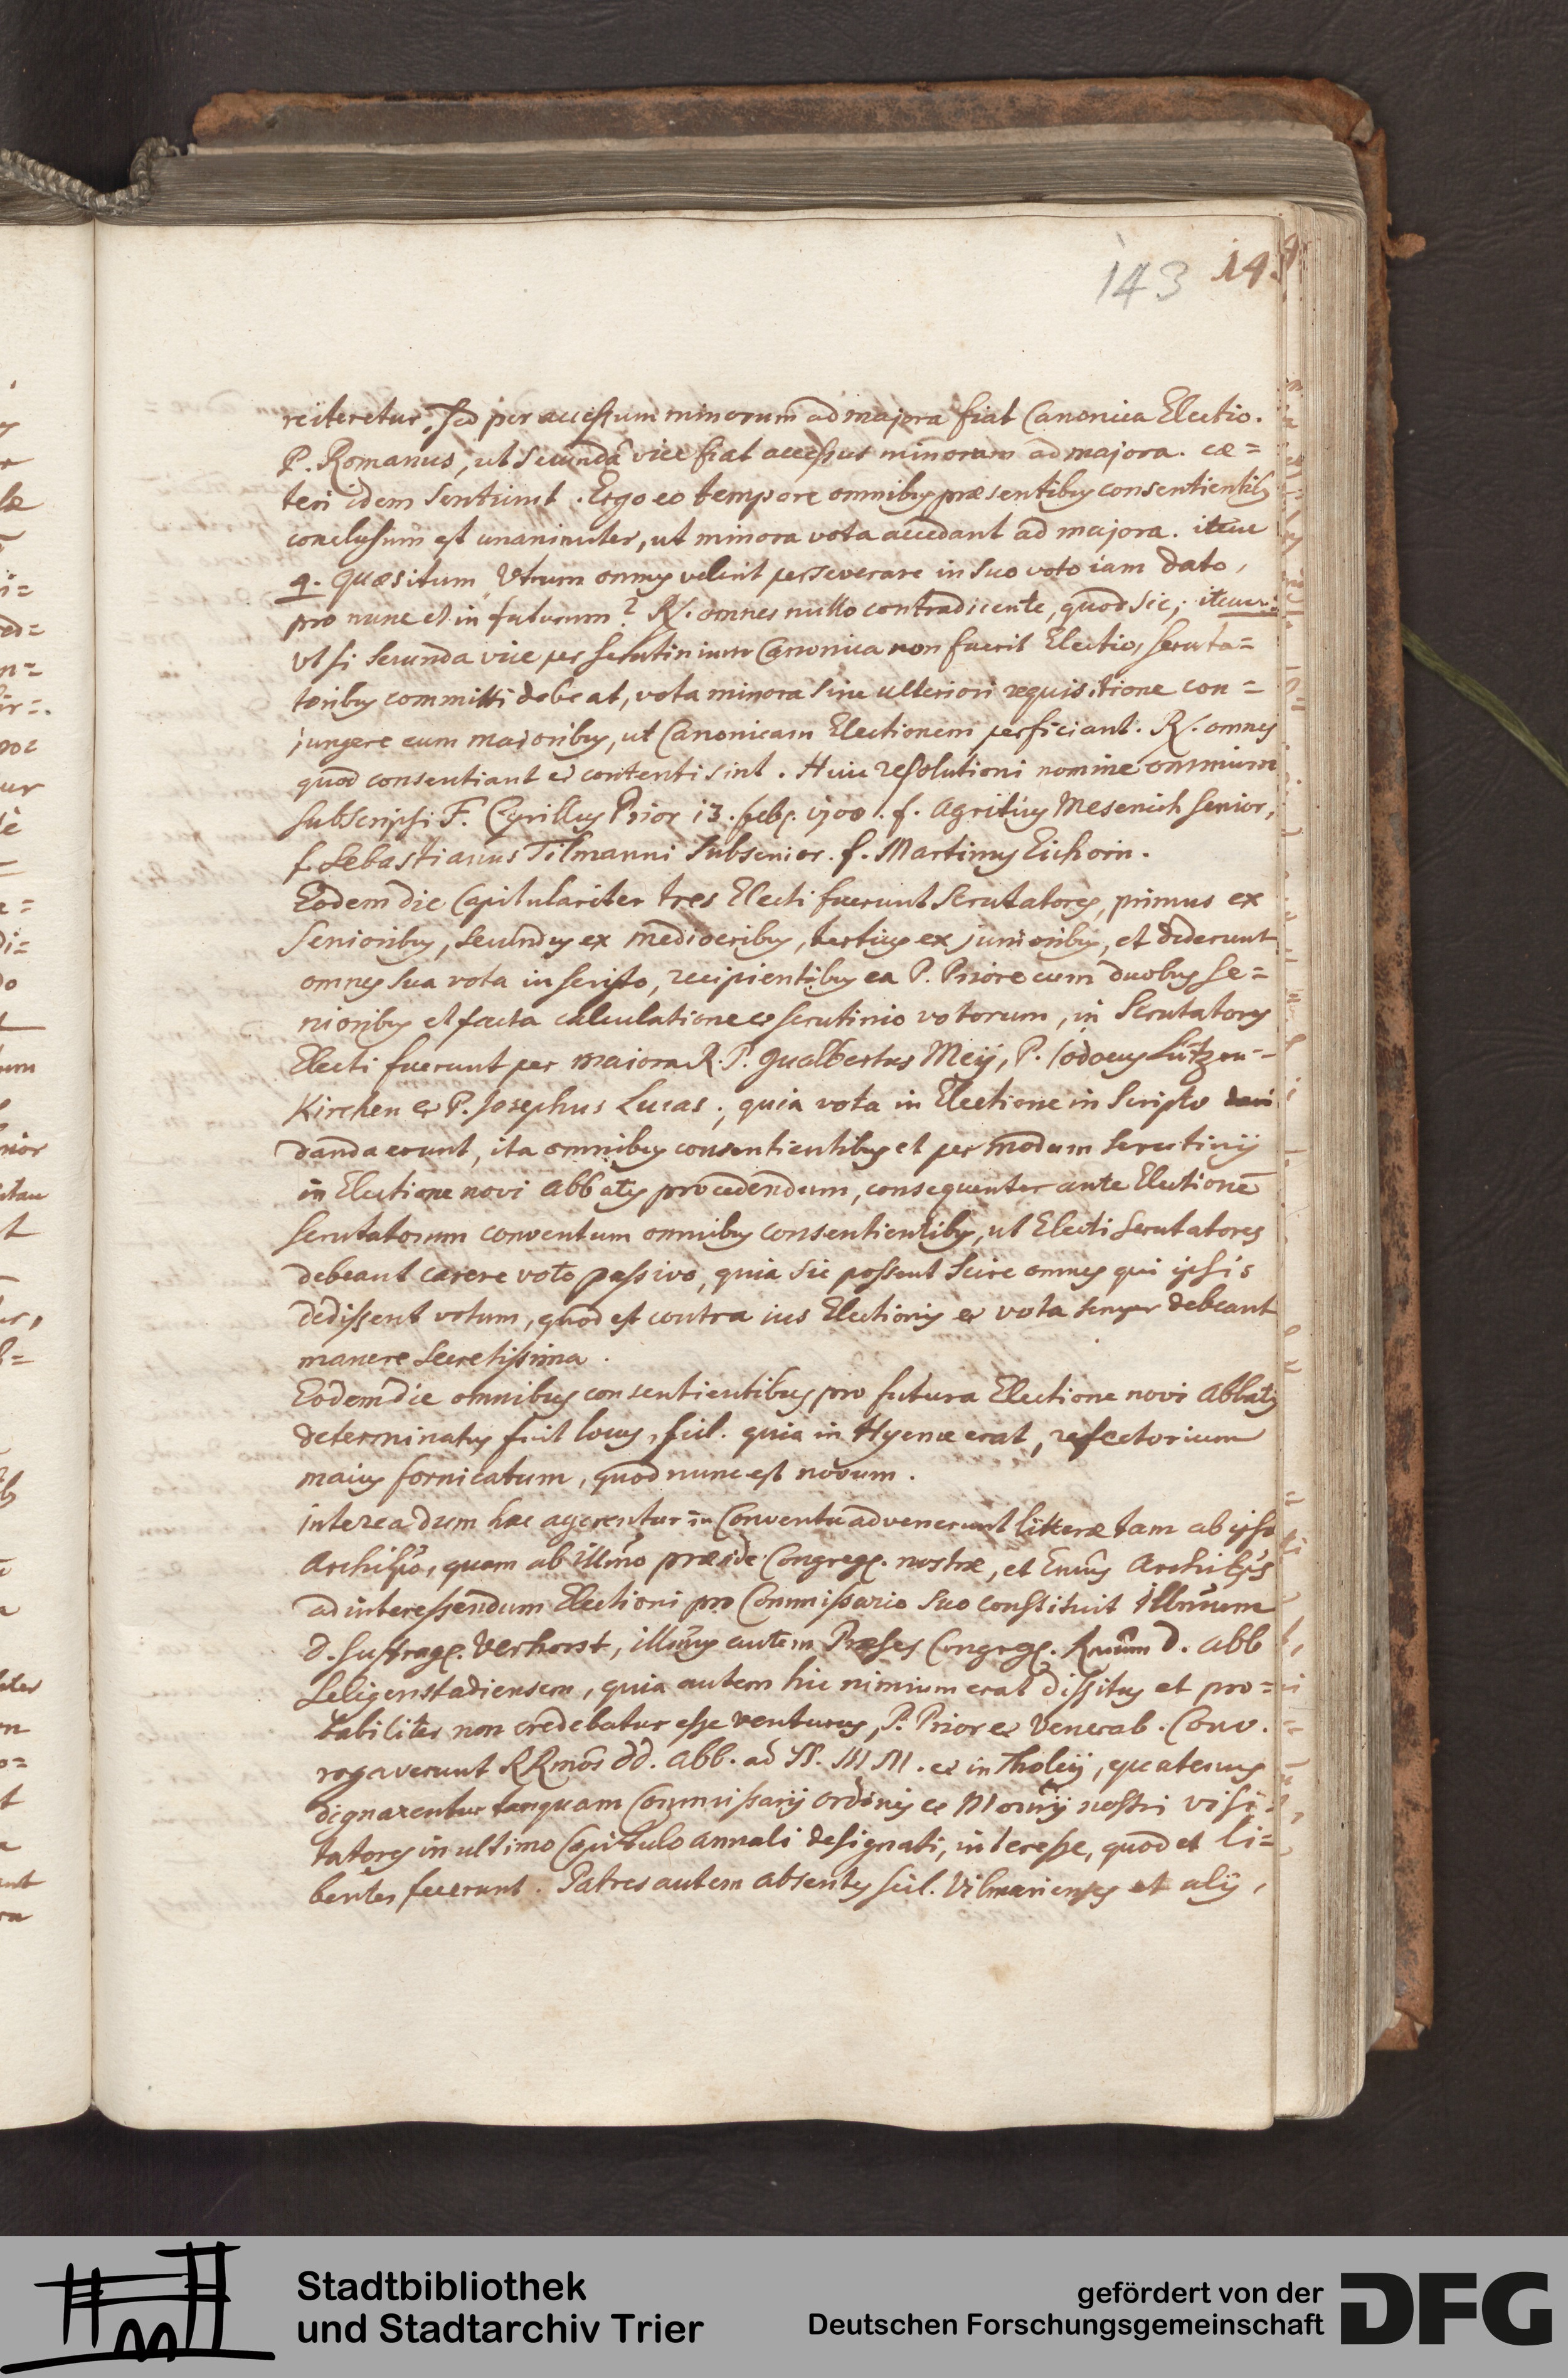 143 14
reiteretur, sed per accessum minorum ad majora fiat Canonica Electio.
P. Romanus, ut secunda vice fiat accessus minorum ad majora. cæ=
teri idem sentiunt. Ergo eo tempore omnibus præsentibus consentientib9
conclusum est unanimiter, ut minora vota accedant ad majora. item
q. quæsitum, Utrum omnes velint perseverare in suo voto iam dato,
pro nunc et in futurum? R/. omnes nullo contradicente, quod sic; item
Ut si secunda vice per scrutinium Canonica non fuerit Electio, scruta=
toribus committi debeat, vota minora sine ulteriori requisitione con=
jungere cum majoribus, ut Canonicam Electionem perficiant. R/. omnes
quod consentiant et contenti sint. Huic resolutioni nomine omnium
subscripsi F. Cyrillus Prior 13. feb. 1700. f. Agritius Mesenich senior,
f. Sebastianus Tilmanni subsenior. f. Martinus Eichorn.
Eodem die Capitulariter tres Electi fuerunt Scrutatores, primus ex
senioribus, secundus ex mediocribus, tertius ex junioribus, et dederunt
omnes sua vota in scripto, recipientibus ea P. Priore cum duobus se=
nioribus et facta calculatione et scrutinio votorum, in Scrutatores
Electi fuerunt per maiora R. P. Gualbertus Meÿ, P. Jodocus Lützen=
Kirchen et P. Josephus Lucas; quia vota in Electione in Scripto dari
danda erunt, ita omnibus consentientibus et per modum scrutinij
in Electione novi Abbatis procedendum, consequenter ante Electionē
scrutatorum conventum omnibus consentientibus, ut Electi scrutatores
debeant carere voto passivo, quia sic possent scire omnes qui ipsis
dedissent votum, quod est contra ius Electionis et vota semper debeant
manere secretissima.
Eodem die omnibus consentientibus pro futura Electione novi Abbatis
determinatus fuit locus, scil. quia in Hyeme erat, refectorium
maius fornicatum, quod nunc est novum.
interea dum hæc agerentur in Conventu advenerunt litteræ tam ab ipso
Archiēpo, quam ab Illmo præside Congreg. nostræ, et Emus Archiēpus
ad interessendum Electioni pro Commissario suo constituit Illmum
D. Suffrag. Verhorst, illmus autem Præses Congreg. Rmum D. Abb
Seligenstadiensem, quia autem hic nimium erat dissitus et pro=
babiliter non credebatur esse venturus, P. Prior et Venerab. Conv.
rogaverunt RRmos dd. Abb. ad SS. MM. et in Tholeÿ, quatenus
dignarentur tanquam Commissarij ordinis et Monrij nostri visi=
tatores in ultimo Capitulo annali designati, interesse, quod et li=
benter fecerunt. Patres autem absentes scil. Vilmarienses et alij,
Stadtbibliothek
und Stadtarchiv Trier
gefördert von der
Deutschen Forschungsgemeinschaft
DFG